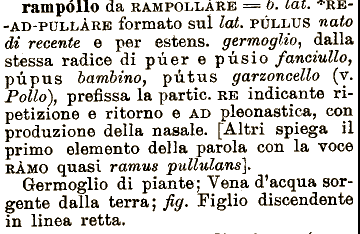 rampóllo da RAMPOLLÀRE = b. lat. *RE-
-AD-PULLÀRE formato sul lat. PÚLLUS nato
di recente e per estens. germoglio, dalla
stessa radice di púer e púsio fanciullo,
púpus bambino, pútus garzoncello (v.
Pollo), prefissa la partic. RE indicante ri-
petizione e ritorno e AD pleonastica, con
produzione della nasale. [Altri spiega il
primo elemento della parola con la voce
RÀMO quasi ramus pullulans].
Germoglio di piante; Vena d'acqua sor-
gente dalla terra; fig. Figlio discendente
in linea retta.